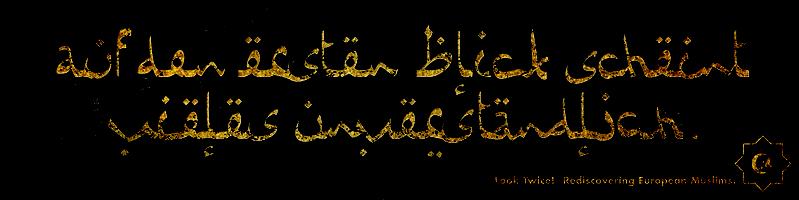 auf den ersten blick scheint
vieles unverständlich.
Look Twice! Rediscovering European Muslims.